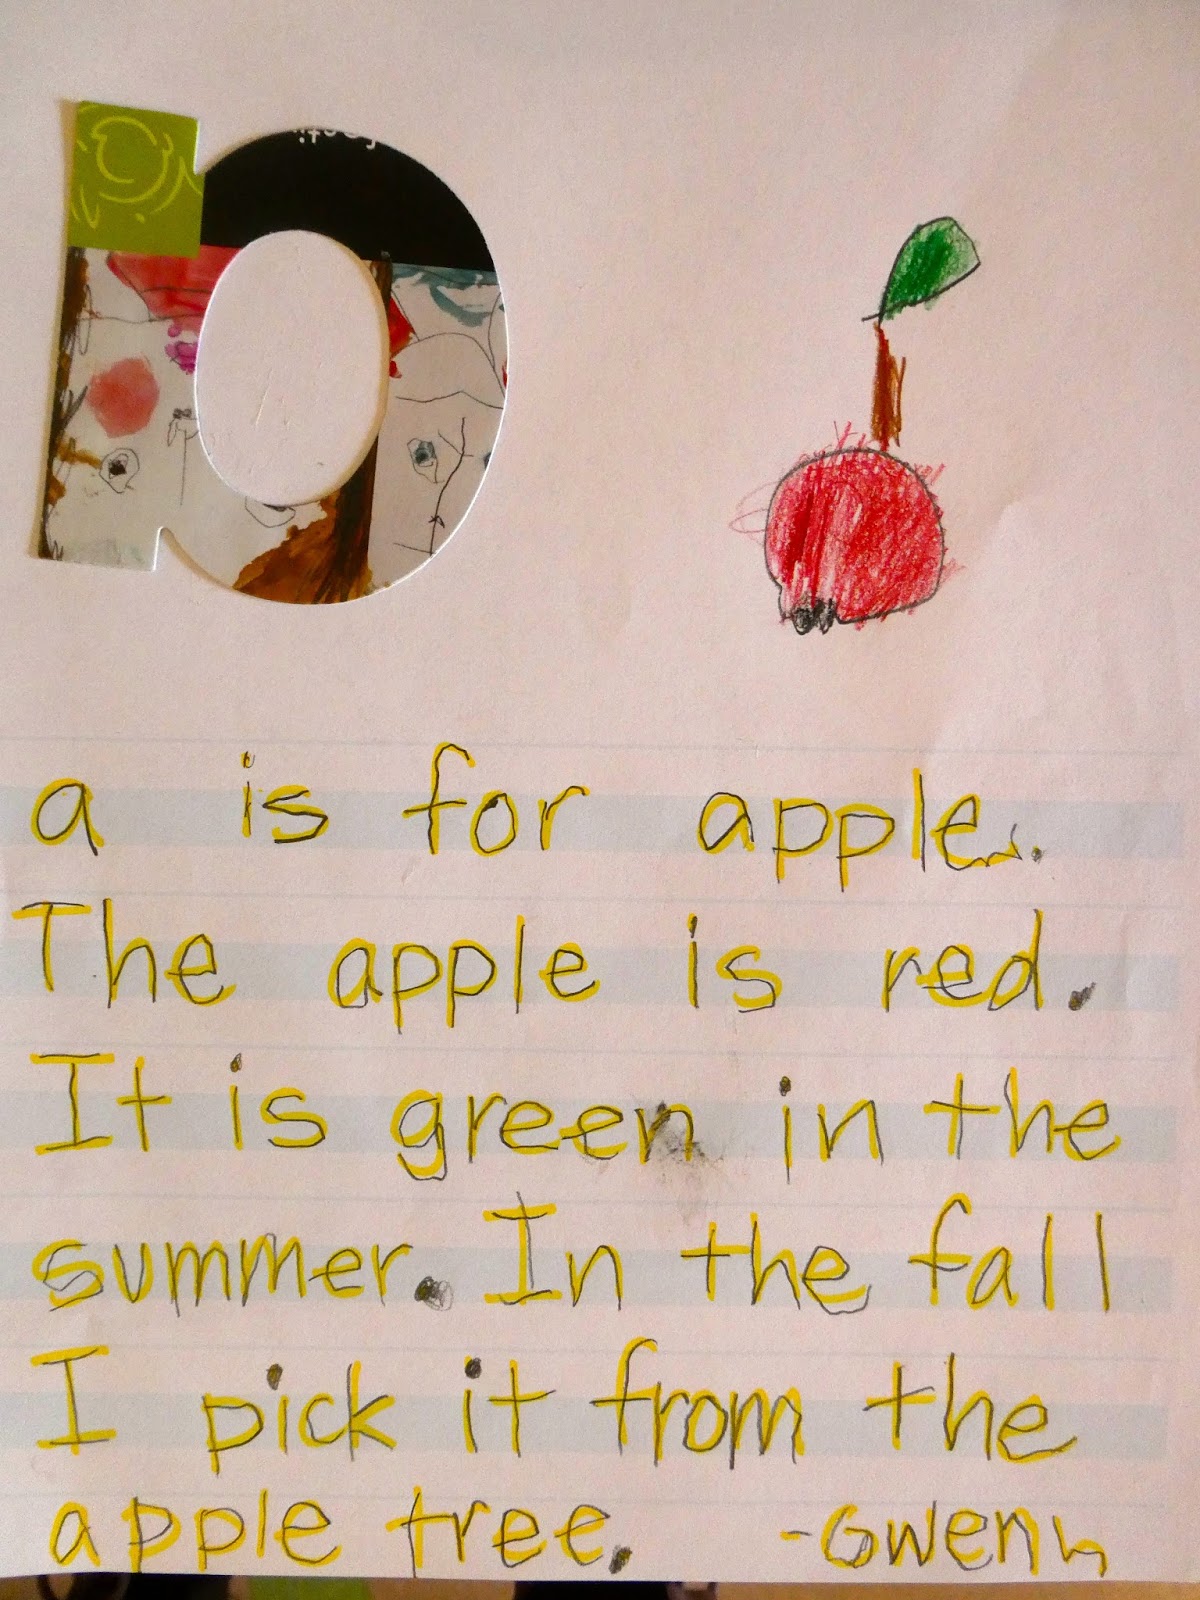 a is for apple.
The apple is red.
It is green in the
summer. In the fall
I pick it from the
apple tree. -Gwenn